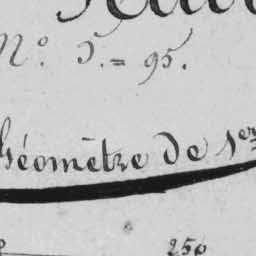 N.° 5.= 95.
Géomètre de 1er
250